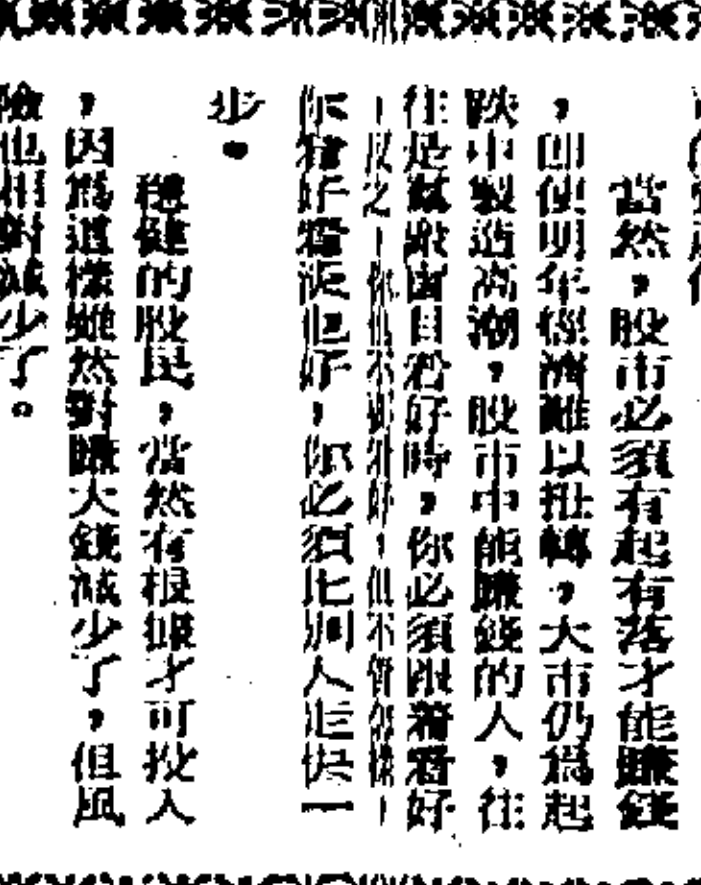 當然，股市必須有起有落才能賺錢
，即使明年經濟難以扭轉，大市仍爲起
跌中製造高潮，股市中能賺錢的人，往
往是盲目看好時，你必須跟着看好
，反之，你也不必看好，但不管怎樣，
你看好看淡也好，你必須比別人走快一
步。
穩健的股民，當然有根據才可投入
，因爲這樣雖然對賺大錢減少了，但風
險也相對減少了。